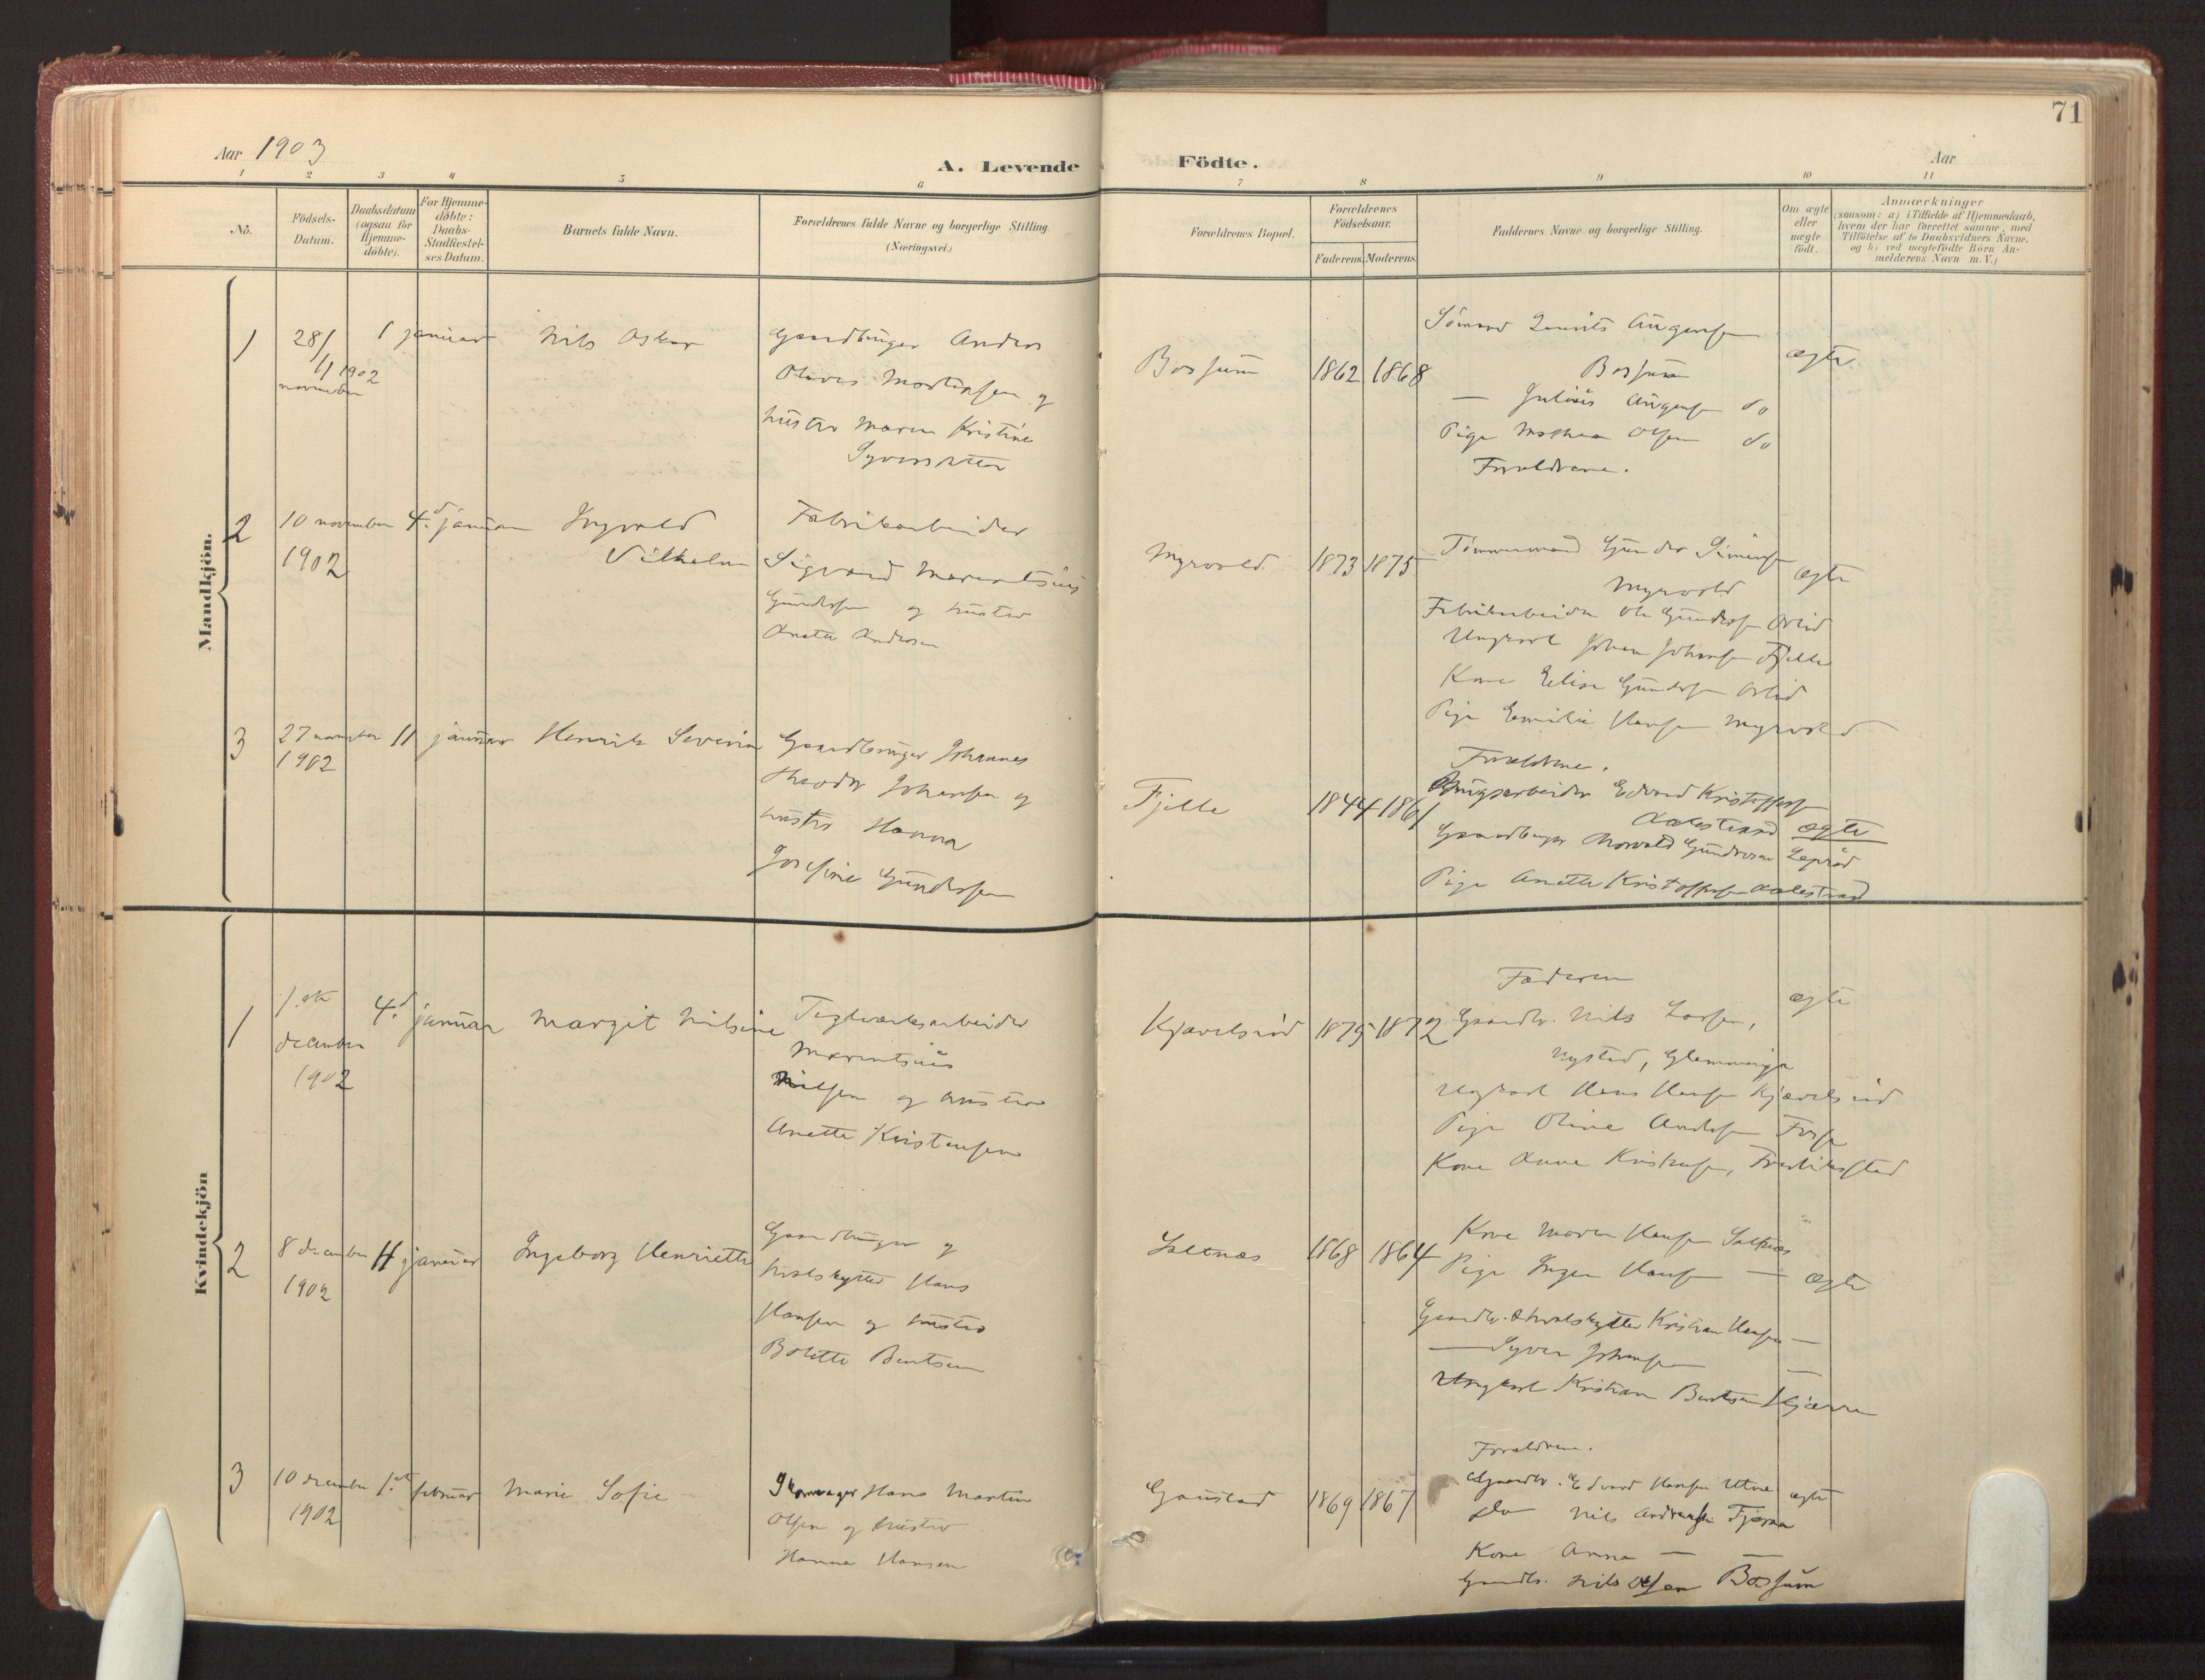 71
Aar 1903
A. Levende Födte.
Aar
1 2 3 4 5 6 7 8 9 10 11
No.
Födsels-
Datum.
Daabsdatum
(ogsaa for
Hjemme-
döbte).
For Hjemme-
döbte:
Daabs-
Stadfæstel-
ses Datum.
Barnets fulde Navn.
Forældrenes fulde Navne og borgerlige Stilling.
(Næringsvei.)
Forældrenes Bopæl.
Forældrenes
Födselsaar.
Faderens. Moderens.
Faddernes Navne og borgerlige Stilling.
Om ægte
eller
uægte
födt.
Anmærkninger
(saasom: a) i Tilfælde af Hjemmedaab,
hvem der har forrettet samme, med
Tilföielse af to Daabsvidners Navne,
og b) ved uægtefödte Börn An-
melderens Navn m. V.)
Mandkjön.
1
28/
11 1902
november
1 januar
Nils Oskar
Gaardbruger Anders
Olaves
og
hustru Maren Kristine
Bossum
1862 1868
Sömand
Bossum
— Julius do
Pige Mathea Olsen do
Forældrene.
ægte
2
10 november
1902
4.d januar
Ingvald
Vilhelm
Fabrikarbeider
Sigvard Marentsius
Gundersen og hustru
Anette Andersen
Myrvold
1873 1875
Tömmermand Gunder Simensen
Myrvold
Fabrikarbeider Ole Gundersen
Ungkarl Johan Johansen Fjelle
Kone Elise Gundersen
Pige Emilie Hansen Myrvold
Forældrene.
ægte
3
27 november
1902
11 januar
Henrik Severin
Gaardbruger Johannes
Theodor Johansen og
hustru Hanna
Josefine Gundersen
Fjelle
1844 1861
Brugsarbeider Edvard Kristoffersen
Gaardbruger Gundersen
Pige Anette Kristoffersen
ægte
Kvindekjön
1
1.ste
december
1902
4.d januar
Margit Nilsine
Teglverksarbeider
Marentsius
Nilsen og hustru
Anette Kristensen
Kjævelsröd
1875 1872
Faderen
Gaardbr. Nils Larsen,
Nysted, Glemminge
Ungkarl Hans Hansen Kjævelsröd
Pige Oline Andersen
Kone Anne Kristensen, Fredriksstad
ægte
2
8 december
1902
11 januar
Ingeborg Henriette
Gaardbruger og
hvalskytter Hans
Hansen og hustru
Bolette Bentsen
Saltnæs
1868 1864
Kone Maren Hansen Saltnæs
Pige Inger Hansen —
Gaardbr. & hvalskytter Kristian Hansen —
— Syver Johansen —
Ungkarl Kristian Bentsen Kjærre
ægte
3
10 december
1902
1.ste februar
Marie Sofie
Skomager Hans Martin
Olsen og hustru
Hanna Hansen
Gaustad
1869 1867
Forældrene.
Gaardbr. Edvard Hansen Utne
Do Nils Andreassen
Kone Anna — —
Gaardbr. Nils Olsen Bossum
ægte